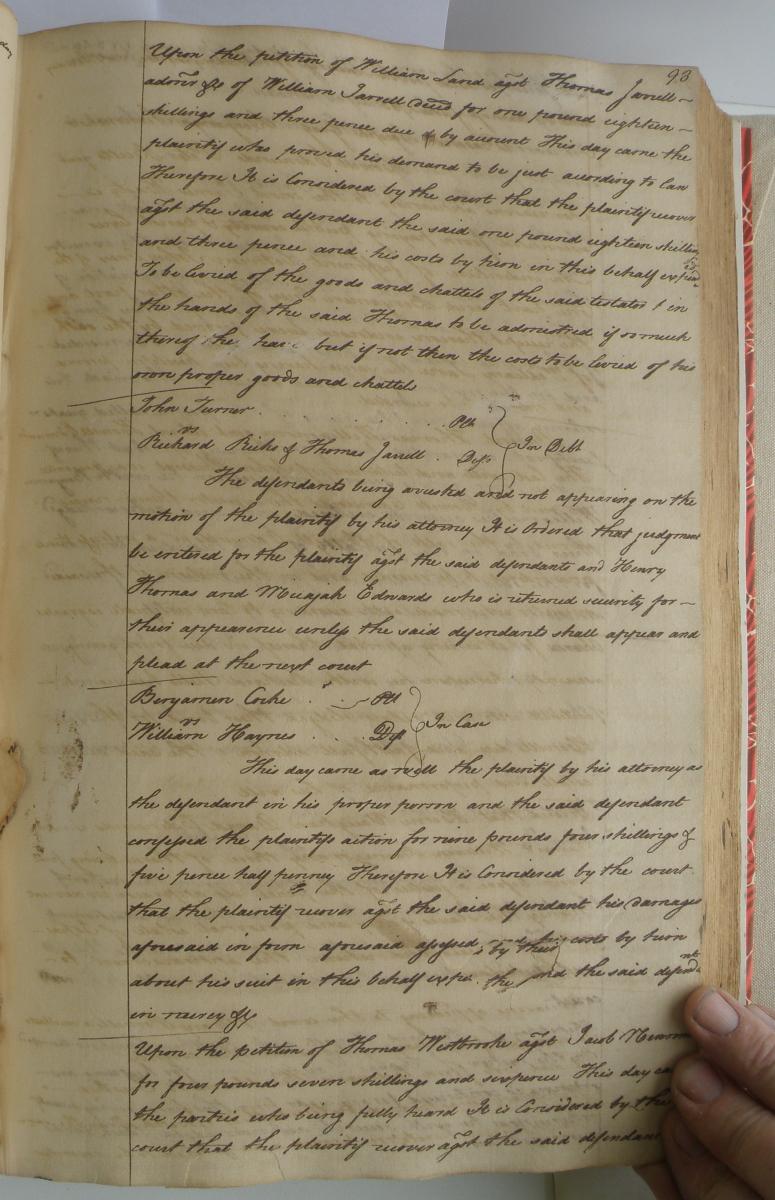 93
Upon the petition of William Sand agst Thomas Jarrell
admr &c of William Jarrell decd for one pound eighteen
shillings and three pence due by account This day came the
plaintif who proved his demand to be just according to Law
Therefore It is Considered by the court that the plaintif recover
agst the said defendant the said one pound eighteen shillings
and three pence and his costs by him in this behalf expend
To be levied of the goods and chattels of the said testator in
the hands of the said Thomas to be admistred if so much
thereof he have but if not then the costs to be levied of his
own proper goods and chattels
John Turner . . . . . . . Plt
vs In Debt
Richard Ricks & Thomas Jarrell . Defs
The defendants being arrested and not appearing on the
motion of the plaintif by his attorney It is Ordered that judgment
be entered for the plaintif agst the said defendants and Henry
Thomas and Micajah Edwards who is returned security for
their appearence unless the said defendants shall appear and
plead at the next court
Benjamen Cocke . . Plt
vs In Case
William Haynes . . . Def
This day came as well the plaintif by his attorney as
the defendant in his proper person and the said defendant
confessed the plaintifs action for nine pounds four shillings &
five pence half penney Therefore It is Considered by the court
that the plaintif recover agst the said defendant his damages
aforesaid in form aforesaid assessed and his costs by him
about his suit in this behalf and the said defendt
in mercy &c
Upon the petition of Thomas Westbrooke agst Jacob
for four pounds seven shillings and sixpence This day
the parties who being fully heard It is Considered by the
court that the plaintif recover agst the said defendant